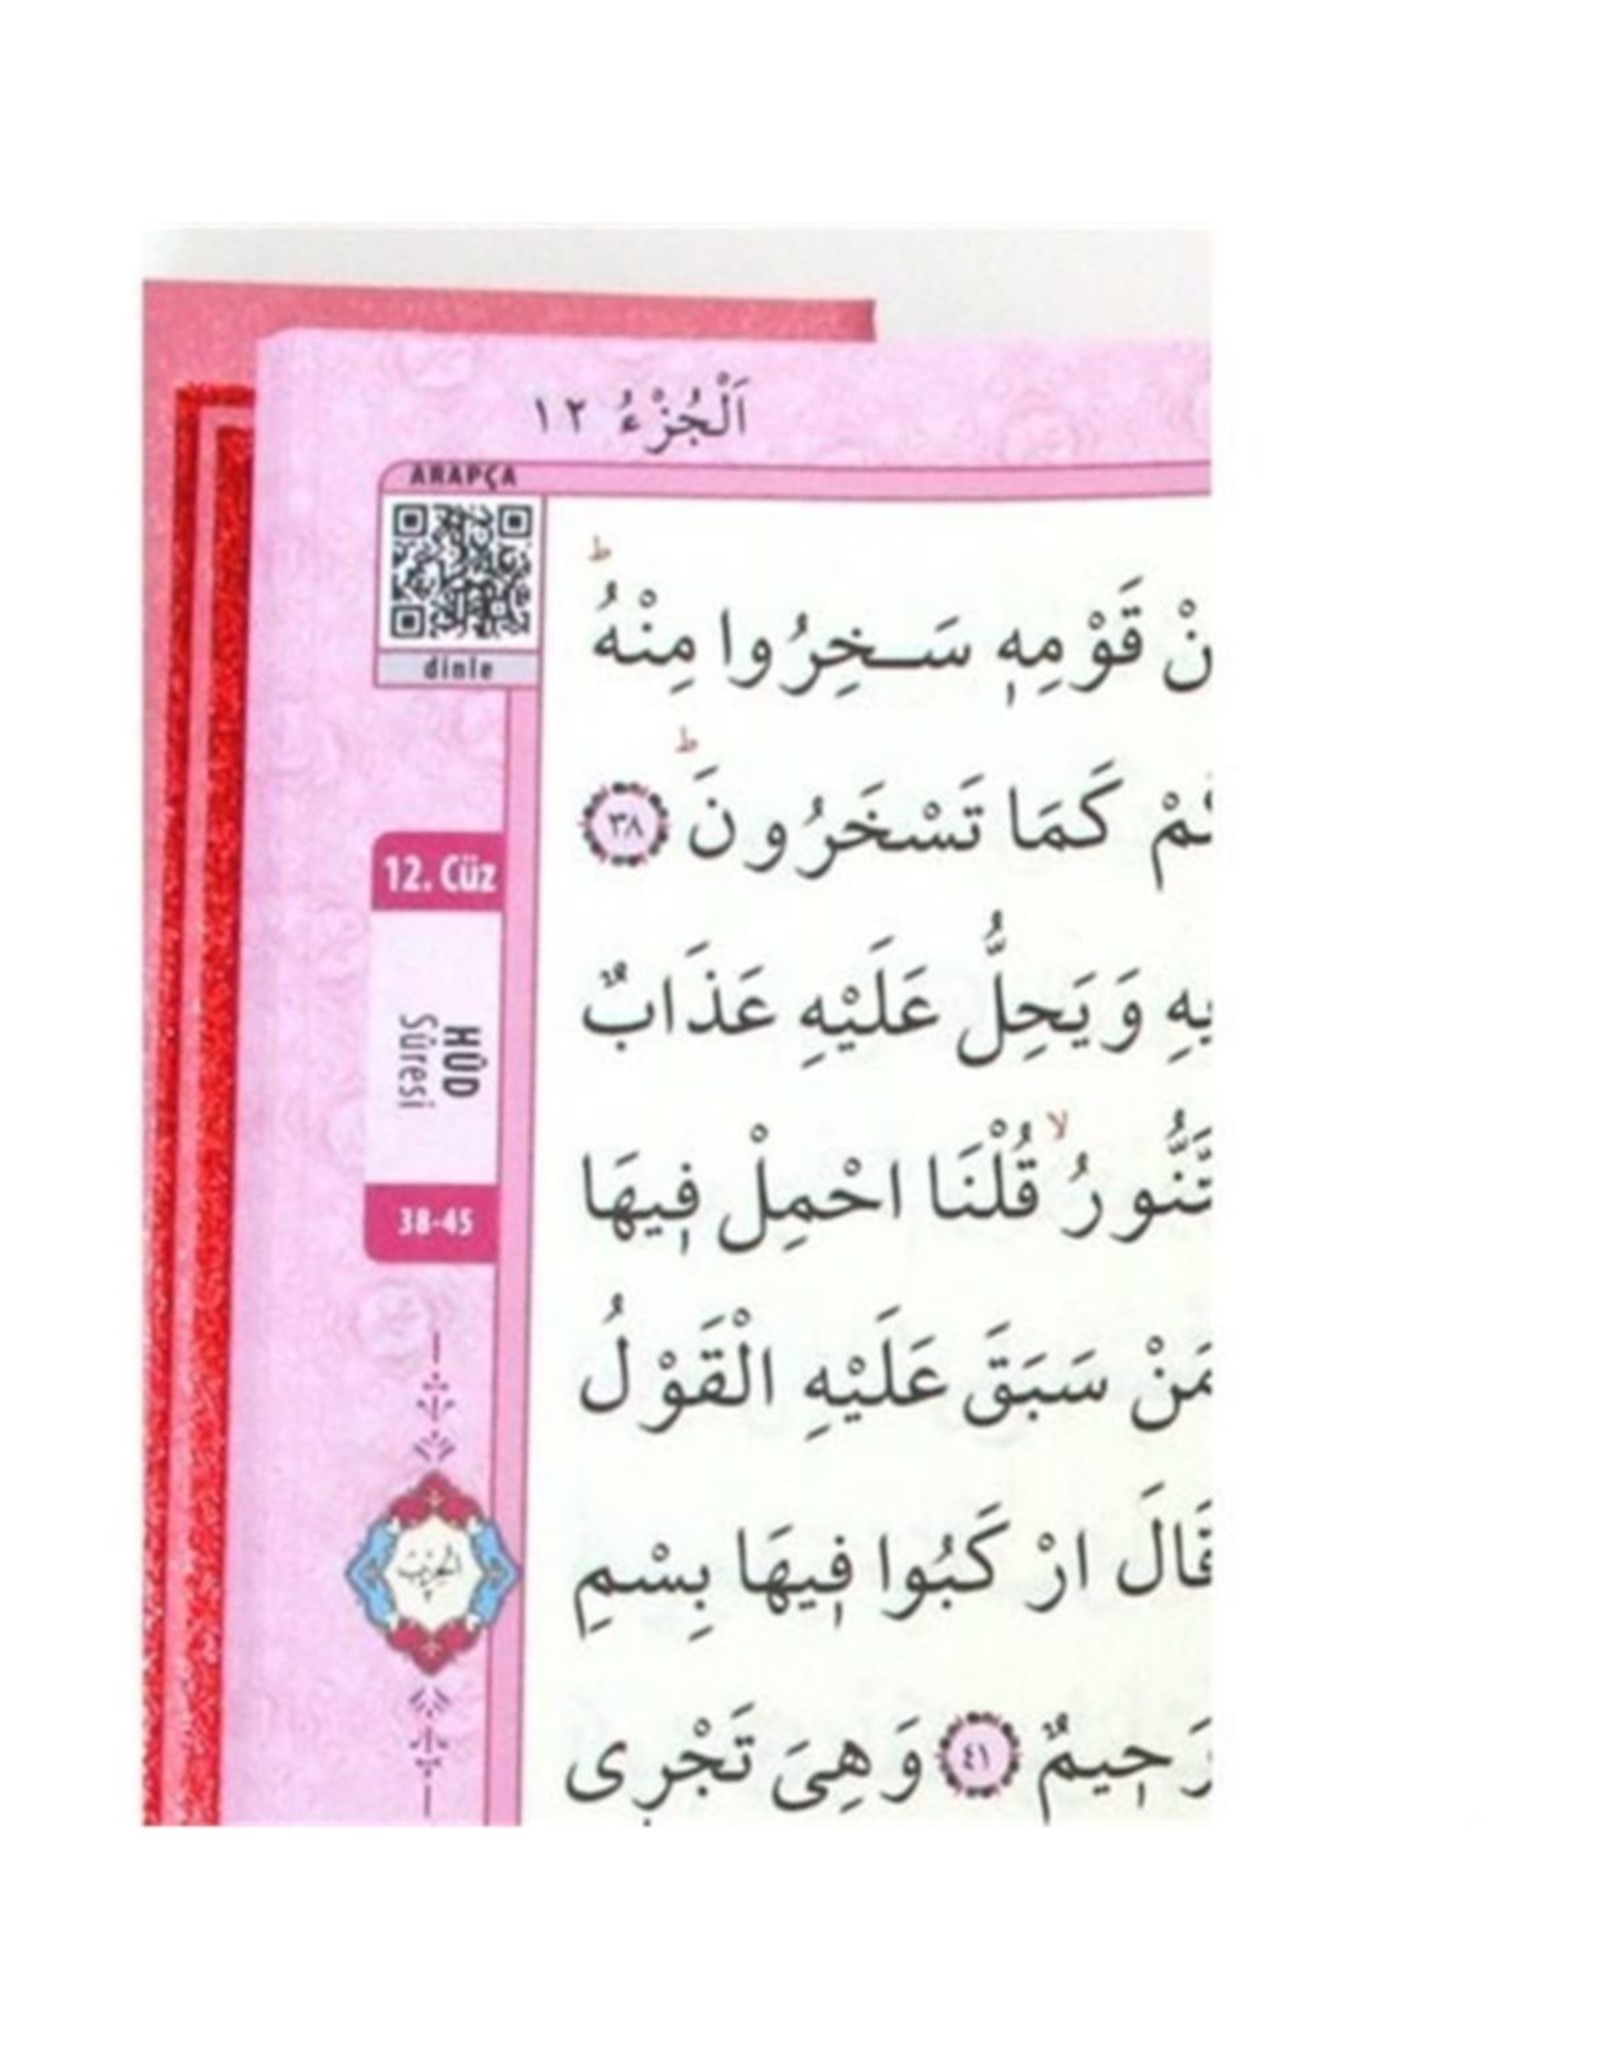 اَلْجُزْءُ ١٢
ARAPÇA
dinle
نْ قَوْمِهٖ سَخِرُوا مِنْهُ ط
كَمَا تَسْخَرُونَ ط ٣٨
وَيَحِلُّ عَلَيْهِ عَذَابٌ
قُلْنَا احْمِلْ فٖيهَا
مَنْ سَبَقَ عَلَيْهِ الْقَوْلُ
قَالَ ارْكَبُوا فٖيهَا بِسْمِ
رَحٖيمٌ ٤١ وَهِىَ تَجْرٖى
12. Cüz
HÛD
Sûresi
38-45